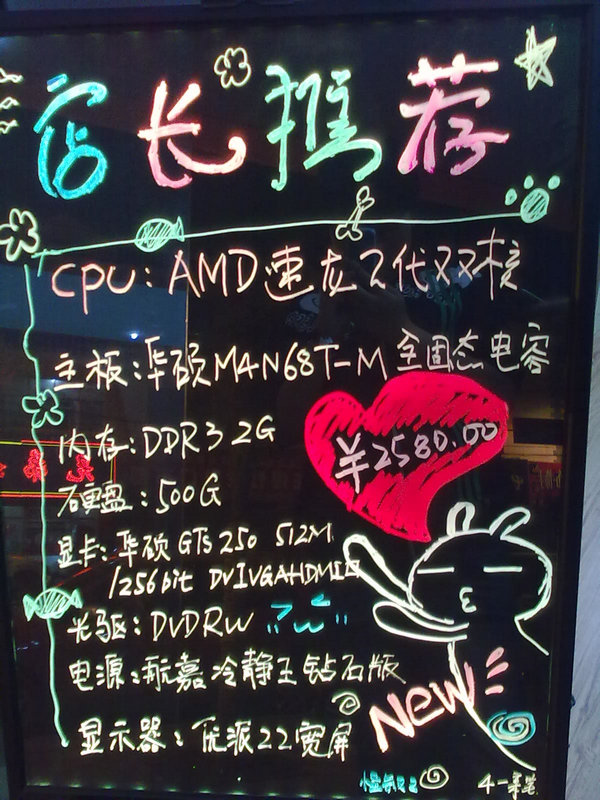 店长推荐
CPU:AMD速龙2代双核
主板:华硕M4N68T-M全固态电容
¥2580.00
内存:DDR3 2G
硬盘:500G
显卡:华硕 GTS 250 512M
/256bit DVIVGAHDMI口
光驱:DVDRW
电源:航嘉冷静王钻石版
NEW
显示器:优派22宽屏